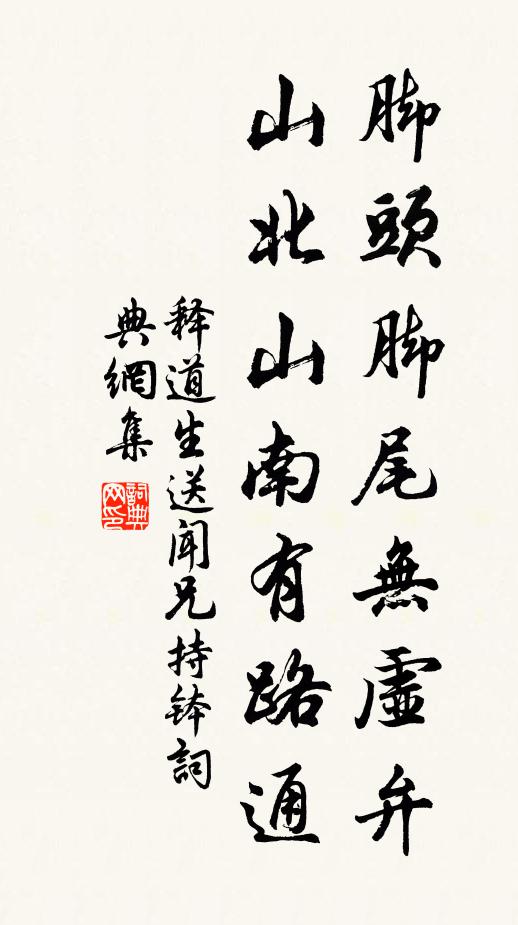 脚頭脚尾無虛弃
山北山南有路通
释道生送闻兄持钵詞
典網集
詞典网印